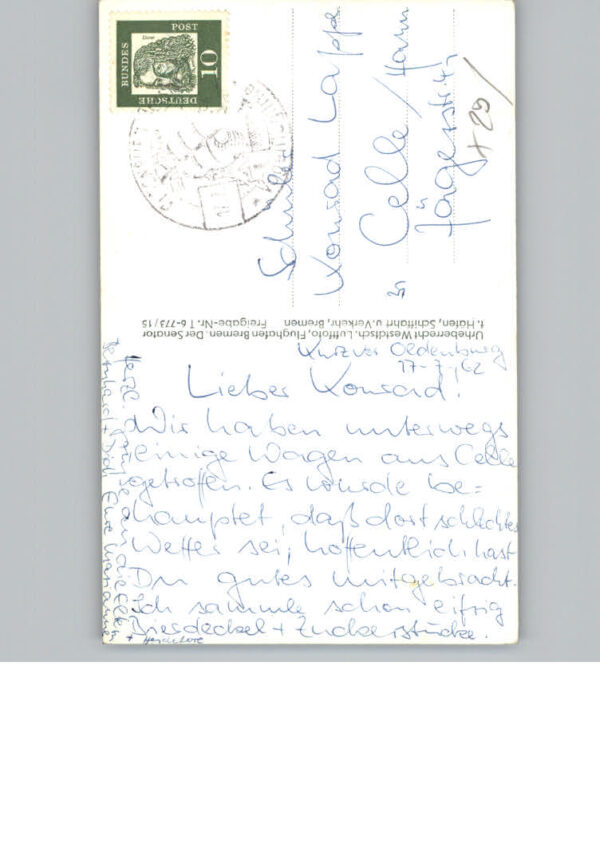 DEUTSCHE
BUNDES
POST
10
Schüler
Konrad Lappe
in Celle / Hann
Jägerstr.
+ 29
Urheberrecht Westdtsch. Luftfoto, Flughafen Bremen. Der Senator
f. Häfen, Schiffahrt u. Verkehr, Bremen Freigabe-Nr. T 6-773/15
Kurz vor Oldenburg
17-7-62
Lieber Konrad!
Wir haben unterwegs
einige Wagen aus Celle
getroffen. Es wurde be=
hauptet, daß dort schlechtes
Wetter sei, hoffentlich hast
Du gutes mitgebracht.
Ich sammle schon eifrig
Bierdeckel + Zuckerstücke.
Herzl.